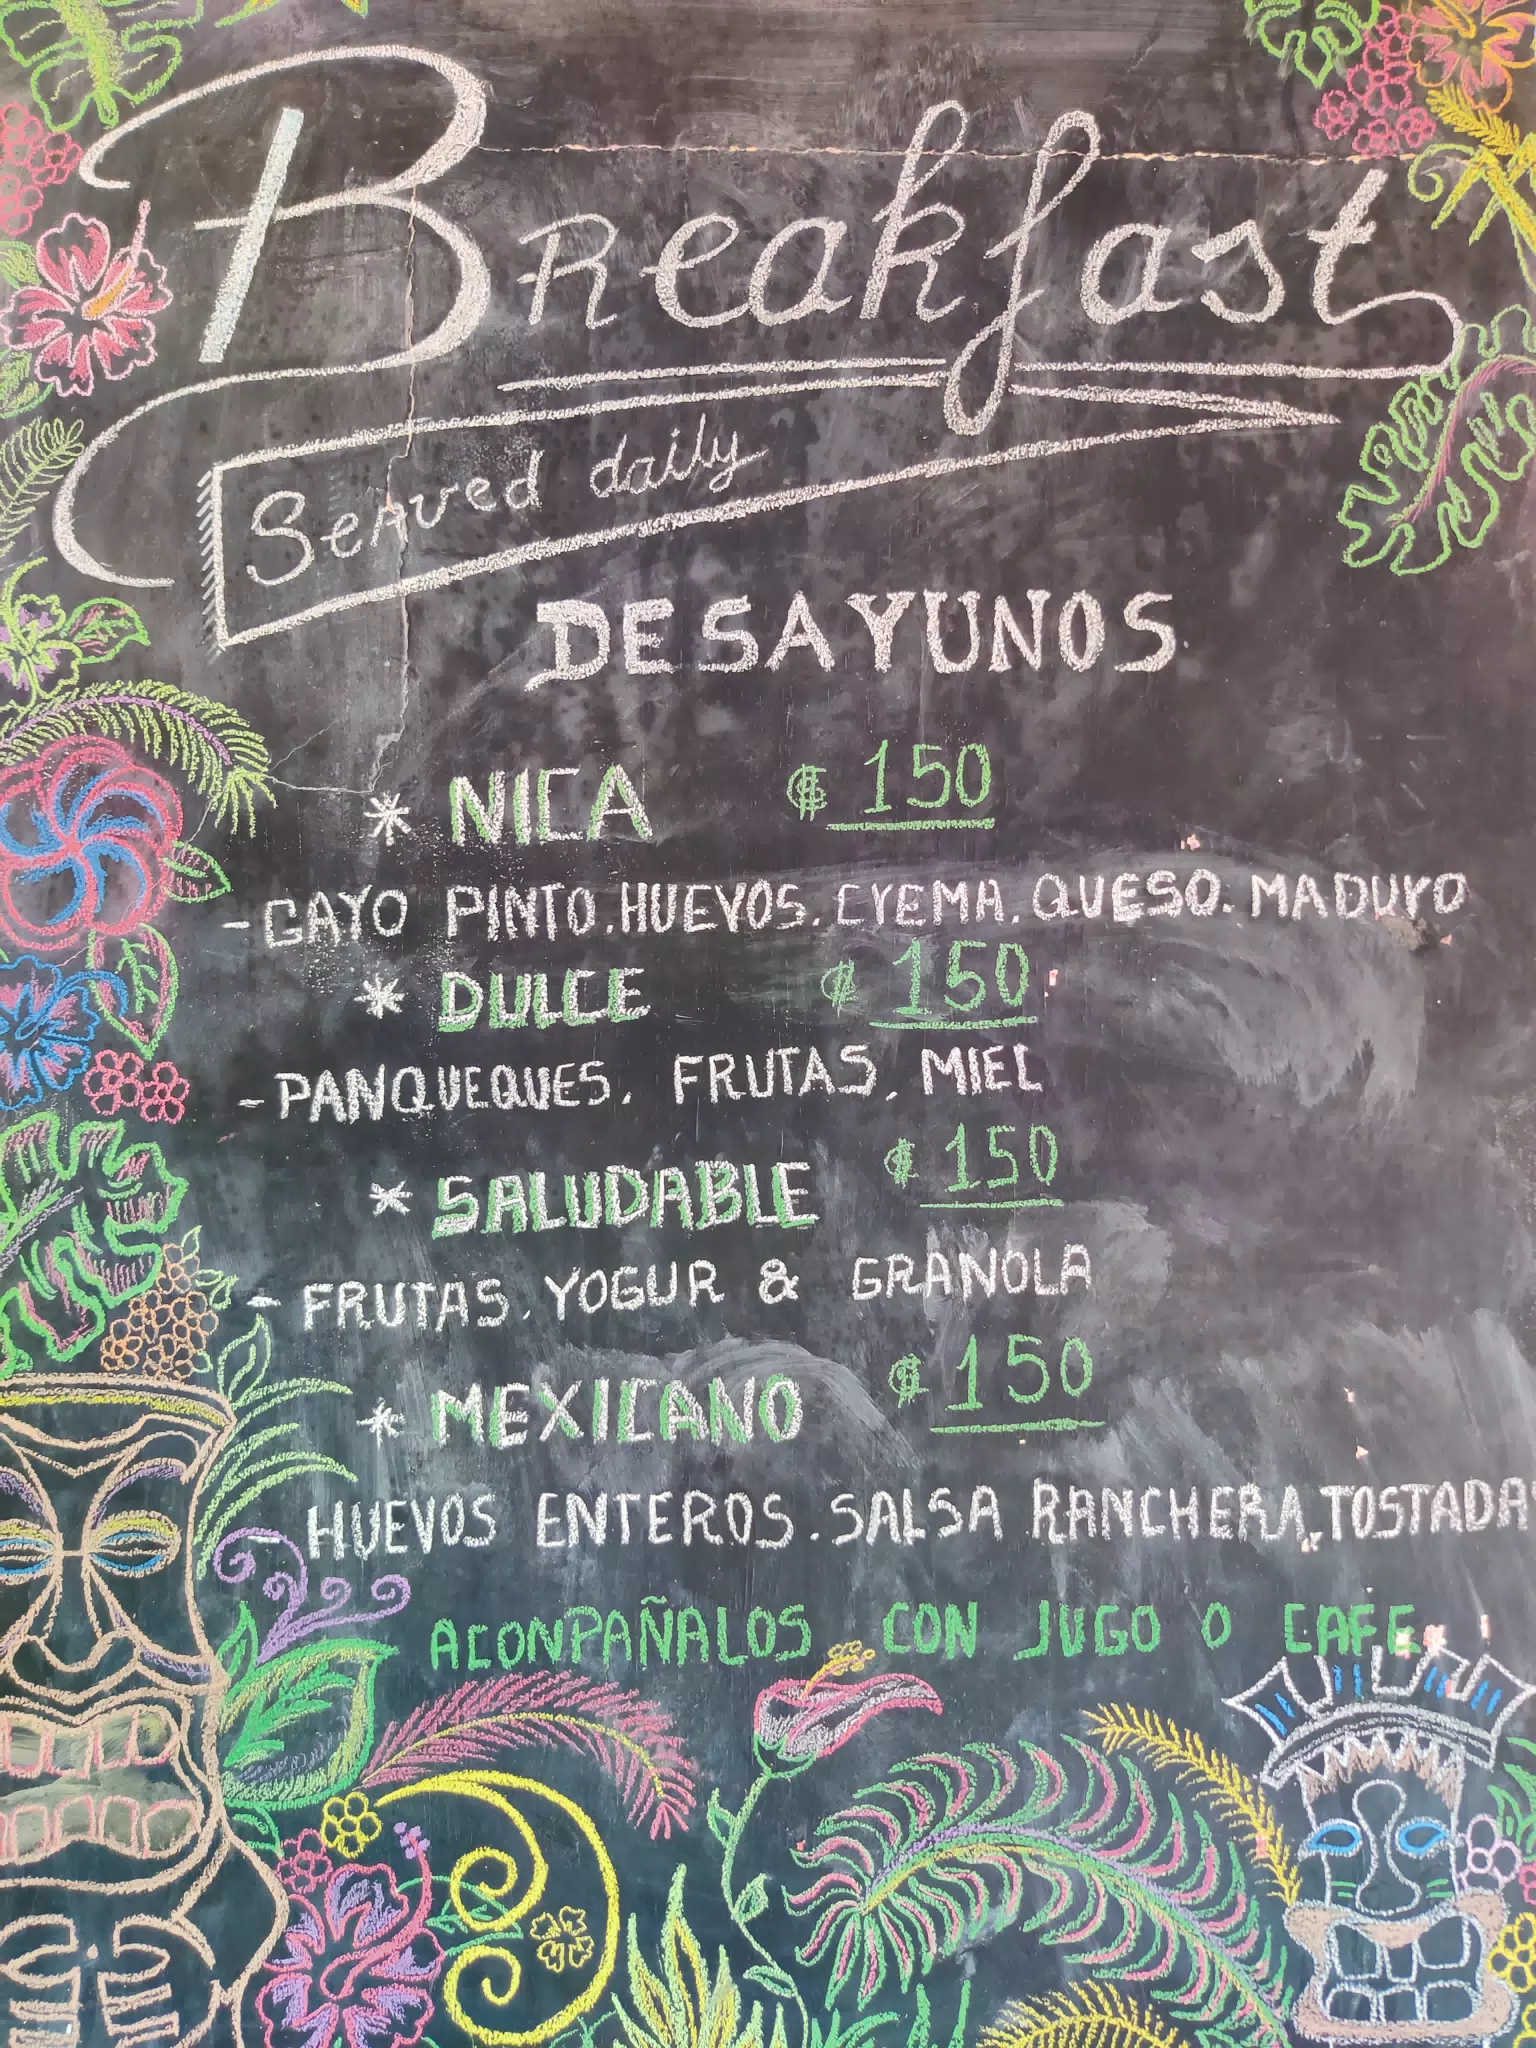 Breakfast
Served daily
DESAYUNOS
* NICA ₡ 150
- GAYO PINTO. HUEVOS. CREMA. QUESO. MADURO
* DULCE ₡ 150
- PANQUEQUES. FRUTAS. MIEL
* SALUDABLE ₡ 150
- FRUTAS. YOGUR & GRANOLA
* MEXICANO ₡ 150
- HUEVOS ENTEROS. SALSA RANCHERA, TOSTADA
ACONPAÑALOS CON JUGO O CAFE